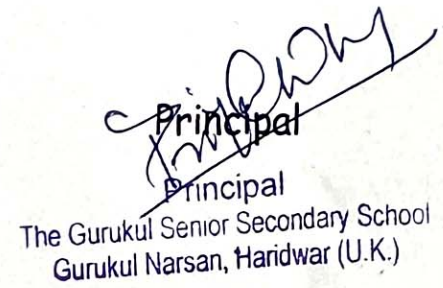 Principal
Principal
The Gurukul Senior Secondary School
Gurukul Narsan, Haridwar (U.K.)